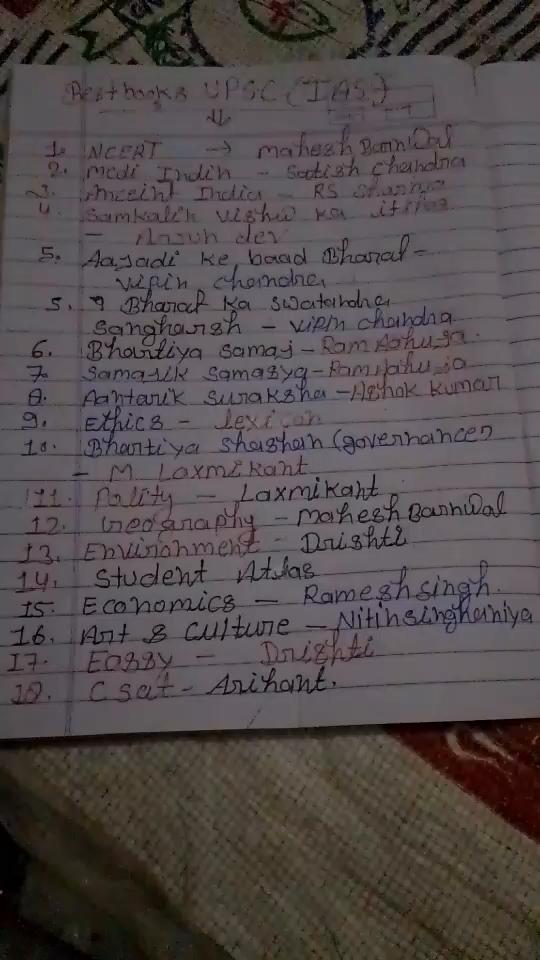 Best books UPSC (IAS)
1. NCERT → Mahesh Barnwal
2. Medi Indin - Satish Chandra
3. Anceint India - RS Sharma
4. Samkalin vishw ka itihas
- Arjun dev
5. Aajadi ke baad Bharat -
vipin chandra
5. 9 Bharat ka swatandra
Sangharsh - vipin chandra
6. Bhartiya samaj - Ram Ahuja
7. Samajik samasya - Ram Ahuja
8. Aantarik suraksha - Ashok Kumar
9. Ethics - lexicon
10. Bhartiya shashan (governance)
- M Laxmikant
11. Polity - Laxmikant
12. Geography - Mahesh Barnwal
13. Environment - Drishti
14. Student Atlas
15. Economics - Ramesh singh.
16. Art & culture - Nitin singhaniya
17. Eassy - Drishti
18. C sat - Arihant.